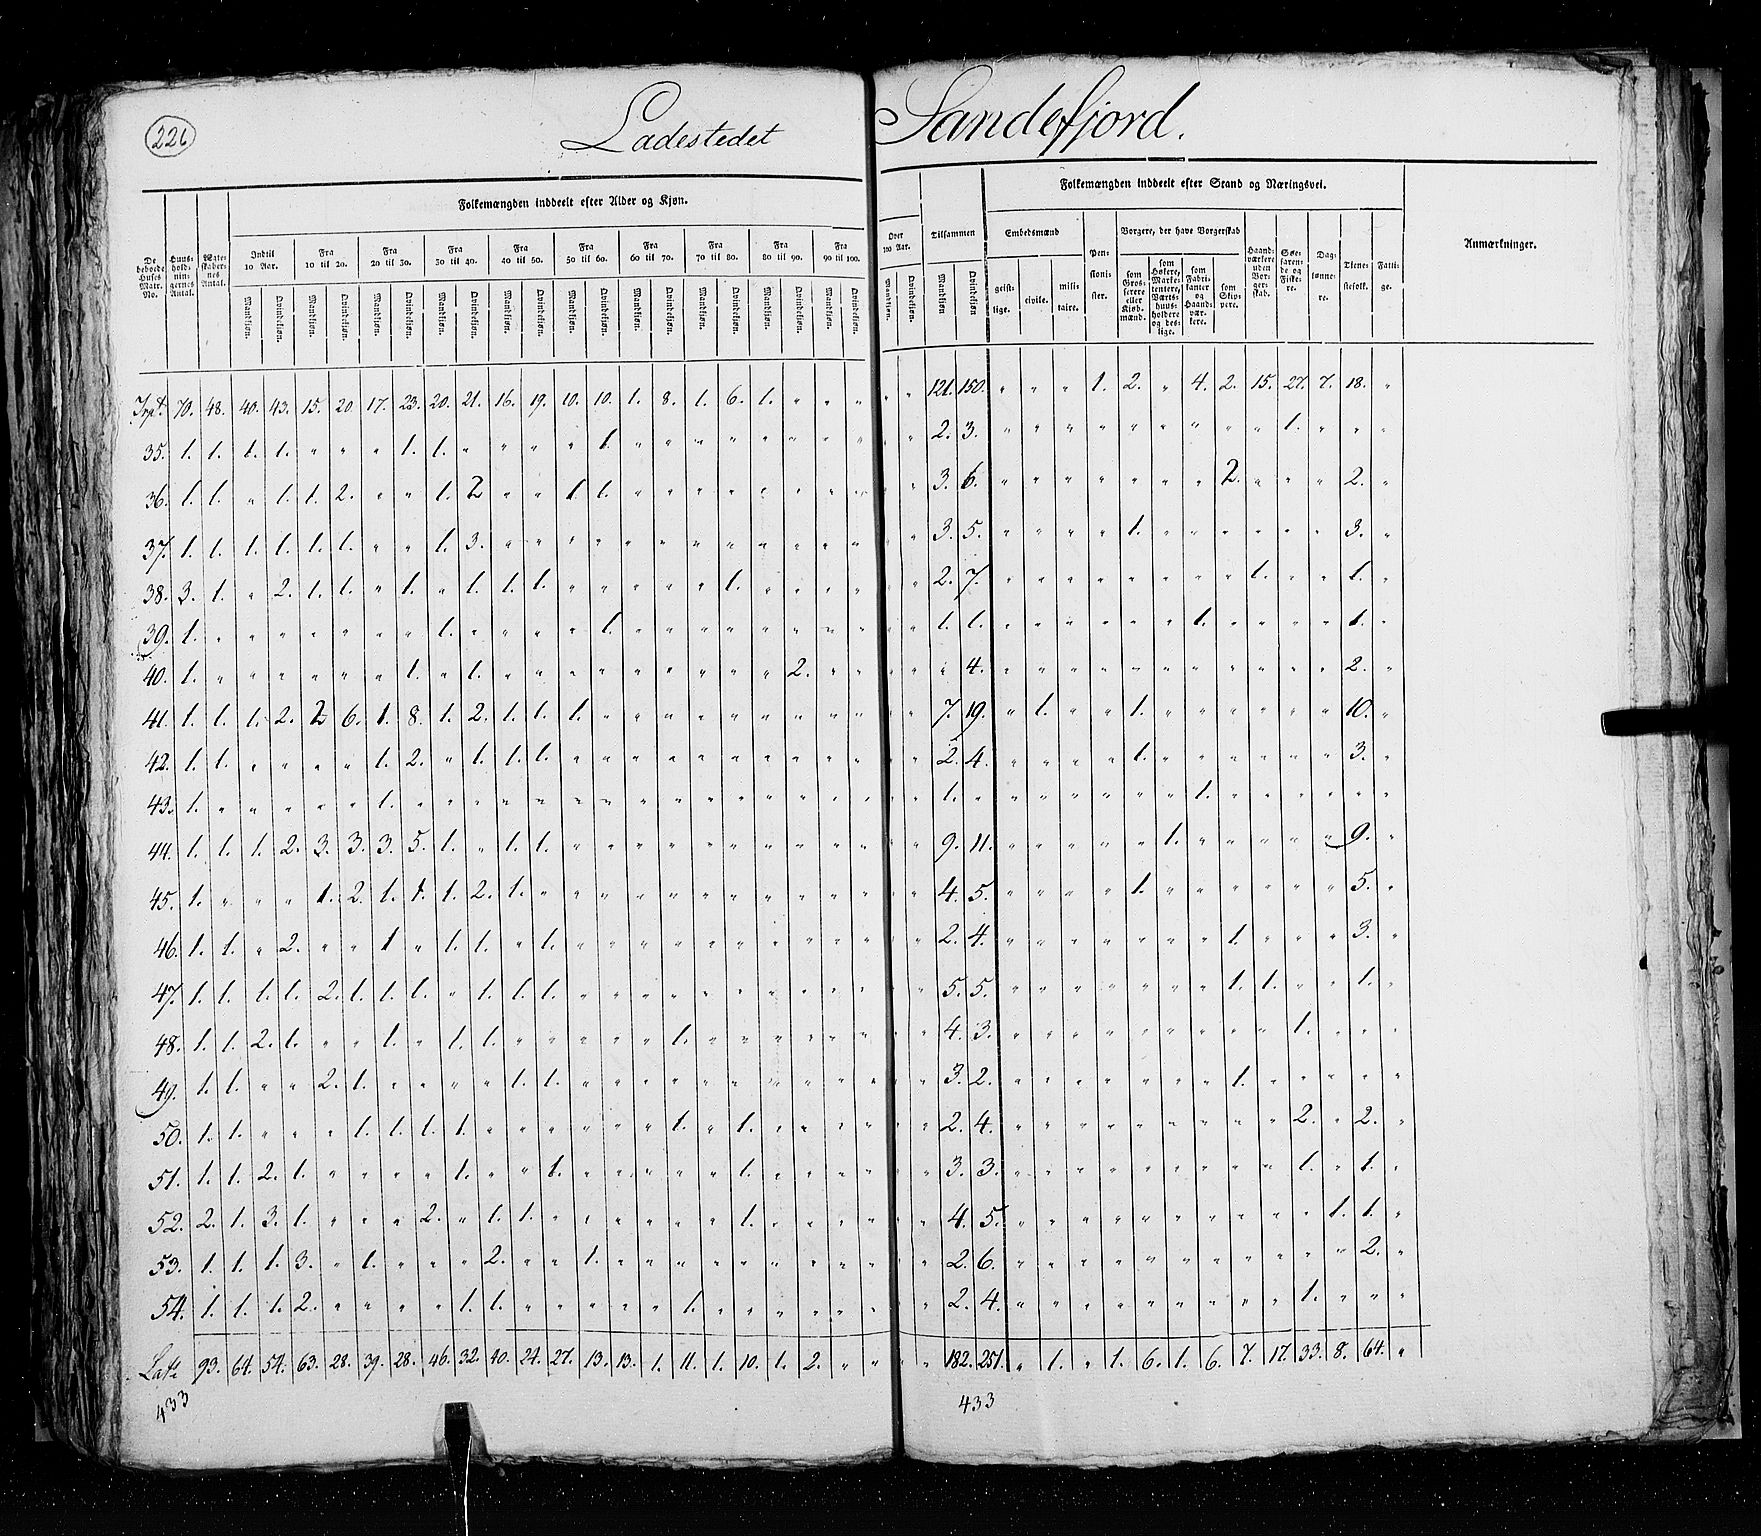 226
Ladestedet Sandefjord.
Folkemængden inddeelt efter Alder og Kjøn.
Folkemængden inddeelt efter Stand og Næringsvei.
De beboede Huses Matr. No. Huus-hold-nin-gernes Antal. Indtil 10 Aar. Fra 10 til 20. Fra 20 til 30. Fra 30 til 40. Fra 40 til 50. Fra 50 til 60. Fra 60 til 70. Fra 70 til 80. Fra 80 til 90. Fra 90 til 100. Over 100 Aar. Tilsammen Embedsmænd Pen-sioni-ster. Borgere, der have Borgerskab Haand-værkere uden Bor-ger-skab. Søe-farende og Fiske-re. Dag-lønne-re. Tiene-stefolk. Fatti-ge. Anmærkninger.
Mandkjøn. Qvindekjøn. Mandkjøn. Qvindekjøn. Mandkjøn. Qvindekjøn. Mandkjøn. Qvindekjøn. Mandkjøn. Qvindekjøn. Mandkjøn. Qvindekjøn. Mandkjøn. Qvindekjøn. Mandkjøn. Qvindekjøn. Mandkjøn. Qvindekjøn. Mandkjøn. Qvindekjøn. Mandkjøn. Qvindekjøn. Mandkjøn. Qvindekjøn geist-lige. civile. mili-taire. som Gros-serere eller Kiøb-mænd. som Høkere, Marke-tentere, Værts-huus-holdere og des-lige. som Fabri-kanter og Haand-vær-kere. som Skip-pere.
70. 48. 40. 43. 15. 20 17. 23. 20. 21. 16. 19. 10. 10. 1. 8. 1. 6. 1. " " " " " 121. 150. " " " 1. 2. " 4. 2. 15. 27. 7. 18. "
35. 1. 1. 1. 1. " " " 1. 1. " " " " 1. " " " " " " " " " " 2. 3. " " " " " " " " " 1. " " "
36. 1. 1. " 1. 1. 2. " " 1. 2 " " 1. 1. " " " " " " " " " " 3. 6. " " " " " " " 2. " " " 2. "
37. 1. 1. 1. 1. 1. 1. " " 1. 3. " " " " " " " " " " " " " " 3. 5. " " " " 1. " " " " " " 3. "
38. 3. 1. " 2. 1. 1. " 1. " 1. 1. 1. " " " " " 1. " " " " " " 2. 7. " " " " " " " " 1. " " 1. "
39. 1. " " " " " " " 1. " " " " 1. " " " " " " " " " " 1. 1. " " " " " " 1. " " " " 1. "
40. 1. " " " " " " 1. " 1. " " " " " " " " " 2. " " " " " 4. " " " " " " " " " " " 2. "
41. 1. 1. 1. 2. 2 6. 1. 8. 1. 2. 1. 1. 1. " " " " " " " " " " " 7. 19. " 1. " " 1. " " " " " " 10. "
42. 1. 1. " " " " 1. 2. " 1. 1. 1. " " " " " " " " " " " " 2. 4. " " " " 1. " " " " " " 3. "
43. 1. " " " " " 1. " " " " " " " " " " " " " " " " " 1. " " " " " " " 1. " " " " " "
44. 1. 1. 1. 2. 3. 3. 3. 5. 1. " 1. 1. " " " " " " " " " " " " 9. 11. " " " " " 1. " " " " " 9. "
45. 1. " " " 1. 2. 1. 1. 1. 2. 1. " " " " " " " " " " " " " 4. 5. " " " " 1. " " " " " " 5. "
46. 1. 1. " 2. " " 1 " 1. 1. " 1. " " " " " " " " " " " " 2. 4. " " " " " " " 1. " " " 3. "
47. 1. 1. 1. 1. 2. 1. 1. 1. " 1. 1. 1. " " " " " " " " " " " " 5. 5. " " " " " " " 1. 1. " " 1. "
48. 1. 1. 2. 1. " " 1. " 1. 1. " " " " " 1. " " " " " " " " 4. 3. " " " " " " " " " 1. " " "
49. 1. 1. " " 2. 1. " " " " 1. 1. " " " " " " " " " " " " 3. 2. " " " " " " " 1. " " " " "
50. 1. 1. " " " 1. 1. 1. 1. " " " " " " 1. " 1. " " " " " " 2. 4. " " " " " " " " " 2. " 2. "
51. 1. 1. 2. 1. " " " " 1. " " 1. " " " " " 1. " " " " " " 3. 3. " " " " " " " " " 1. " 1. "
52. 2. 1. 3. 1. " " " 2. " 1. 1. " " " " " " 1. " " " " " " 4. 5. " " " " " " " " " " 1. 1. "
53. 1. 1. 1. 3. " 1. " " " 2. " " 1. " " " " " " " " " " " 2. 6. " " " " " " " " " " " 2. "
54. 1. 1. 1. 2. " " " " 1. 1. " " " " " 1. " " " " " " " " 2. 4. " " " " " " " " " 1. " " "
93. 64. 54. 63. 28. 39. 28. 46. 32. 40. 24. 27. 13. 13. 1. 11. 1. 10. 1. 2. " " " " 182. 251. " 1. " 1. 6. 1. 6. 7. 17. 33. 8. 64. "
433 433